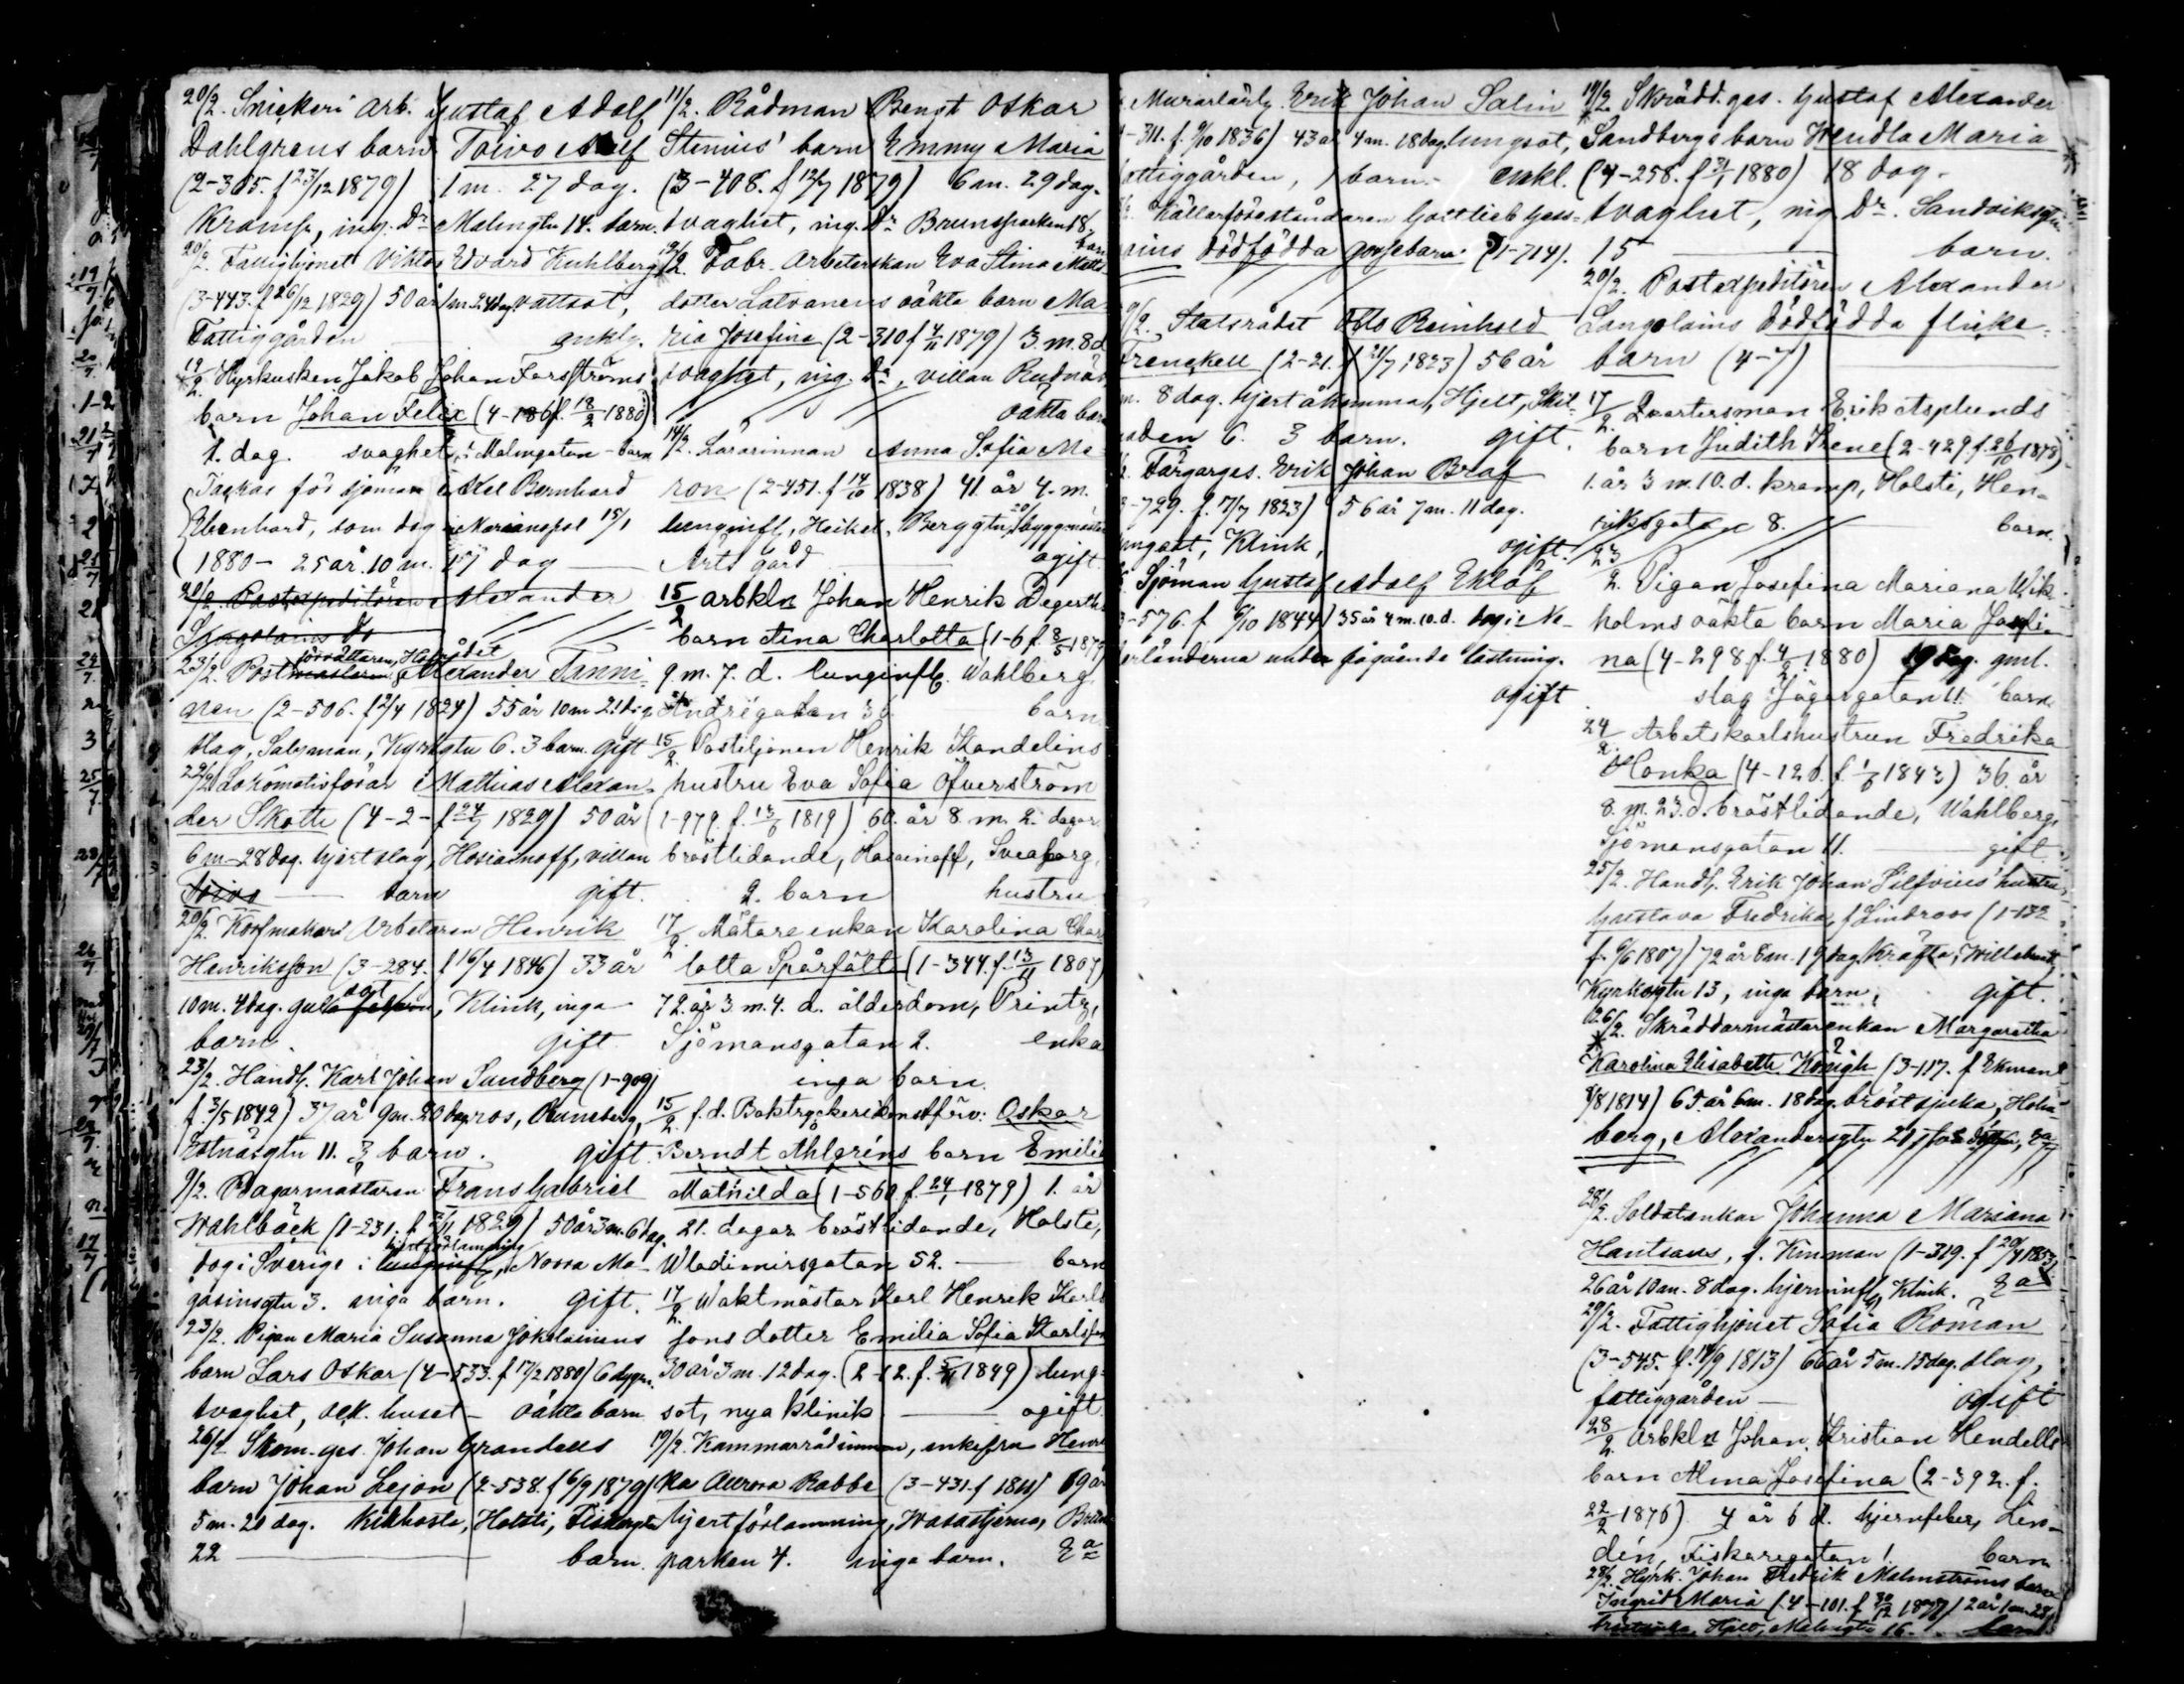 20/2. Snickeri arb. Gustaf Adolf
Dahlgrens barn Toivo Adolf
(2-305. f 23/12 1879) 1 m. 27 dag.
Kramp, ing. Dr Malmgtn 14. barn.
20/2. Fattighjonet Viktor Edvard Kuhlberg
(3-443. f 26/12 1829) 50 år 1m. 24 dag. vattsot,
Fattiggården enkl.
19/2. Hyrkusken Jakob Johan Forsströms
barn Johan Felix (4-186 f. 18/2 1880)
1. dag. svaghet, Malmgatan - barn
Tackas för sjöman Axel Bernhard
Ebenhard, som dog i Marianopol 15/1
1880 - 25 år. 10 m. 17 dag
20/2. Postexpeditören Alexander
Langolains
förvaltaren, Hofrådet
23/2. Postmästaren Alexander Tanni-
nen (2-506. f 2/4 1824) 55 år 10 m 21 dag
slag, Salzman, Kyrkogtn 6. 3 barn. gift
22/2 Lokomotivförar Mathias Alexan-
der Skotte (4-2- f 24/7 1829) 50 år
6 m 28 dag. hjertslag, Hosiainoff, villan
Toivo - barn gift.
20/2. Korfmakeri Arbetaren Henrik
Henriksson (3-284. f 16/4 1846) 33 år
10 m. 4 dag. gula sot, Klink, inga
barn. gift
23/2. Handl. Karl Johan Sundberg (1-909)
f. 3/5 1842) 37 år 9 m. 20 dag ros, Runeberg,
Estnäsgtn 11. 3 barn. gift.
9/2. Bagarmästaren Frans Gabriel
Wahlbäck (1-231. f 3/11 1829) 50 år 3 m. 6 dag.
hjertförlamning
dog i Sverige i lunginfl, Norra Ma-
gasinsgtn 3. inga barn. gift.
23/2. Pigan Maria Susanna Jokelainens
barn Lars Oskar (4-533. f 17/2 1880) 6 dygn.
svaghet, huset - oäkta barn
26/2 Skom. ges. Johan Grandells
barn Johan Lejon (2-538. f 6/9 1879)
5 m. 20 dag. Kikhosta, Holsti, Fiskargtn
22 barn.
11/2. Rådman Bengt Oskar
Stenius' barn Emmy Maria
(3-408. f 12/7 1879) 6 m. 29 dag.
svaghet, ing. Dr Brunsparken 18,
barn
12/2. Fabr. Arbeterskan Eva Stina Matts-
dotter Latvanens oäkta barn Ma-
ria Josefina (2-310 f 4/11 1879) 3 m. 8 d
svaghet, ing. Dr, villan Rudnäs
oäkta barn
14/2. Lärarinnan Anna Sofia Me-
ron (2-451. f 14/10 1838) 41. år 4. m.
lunginfl, Heikel, Berggtn, byggmästar
Arts gård ogift
15/2 arbkln Johan Henrik Degerths
barn Aina Charlotta (1-6 f. 8/5 1879)
9 m. 7. d. lunginfl. Wahlberg,
Andrégatan 30 barn
15/2. Postiljonen Henrik Standelins
hustru Eva Sofia Öfverström
(1-979. f. 13/6 1819) 60. år 8. m. 2. dagar
bröstlidande, Hasainoff, Sveaborg,
2. barn hustru
17/2. Mätare enkan Karolina Char-
lotta Spårfält (1-344. f. 13/11 1807)
72. år 3. m. 4. d. ålderdom, Printz,
Sjömansgatan 2. enka
inga barn.
15/2 f.d. Boktryckeri konstförv: Oskar
Berndt Ahlgrens barn Emilia
Mathilda (1-560 f. 24/1 1879) 1. år
21. dagar bröstlidande, Holste,
Wladimirsgatan 52. barn
17/2. Waktmästar Karl Henrik Karls-
sons dotter Emilia Sofia Karlsson
30 år 3 m. 12 dag. (2-12. f. 5/11 1849) lung-
sot, nya klinik ogift.
19/2. Kammarrådinnan, enkefru Henri-
ka Aurora Rabbe (3-431. f 1811) 69 år
hjertförlamning, Wasastjerna, Bruns-
parken 4. inga barn. Ea
Murarlärlg. Erik Johan Salin
-311. f. 9/10 1836) 43 år 4 m. 18 dag. lungsot,
fattiggården, 1 barn. enkl.
Källarföreståndaren Gottlieb Gess-
nius dödfödda gossebarn. (1-714).
9/2. Statsrådet Otto Reinhold
Frenckell (2-21. f 21/7 1823) 56 år
m. 8 dag. hjertåkomma, Hjelt, Skil-
naden 6. 3 barn. gift.
Färgarges. Erik Johan Braf
-729. f. 7/7 1823) 56 år 7 m. 11 dag.
lungsot, Klink, ogift.
Sjöman Gustaf Adolf Eklöf
-576. f 6/10 1844) 35 år 4 m. 10. d. dog i Ne-
derländerna under pågående lastning.
ogift
19/2 Skrädd. ges. Gustaf Alexander
Sandbergs barn Wendla Maria
(4-258. f 31/1 1880) 18 dag.
svaghet, ing Dr. Sandviksgtn
15 barn.
20/2. Postexpeditören Alexander
Langolains dödfödda flicke-
barn (4-7)
17/2. Qvartersman Erik Asplunds
barn Judith Irene (2-429. f. 26/10 1878)
1. år 3 m. 10. d. kramp, Holsti, Hen-
riksgatan 8. barn.
23/2. Pigan Josefina Mariana Wik-
holms oäkta barn Maria Josefi-
na (4-298. f. 4/2 1880) 19 dag. gml.
slag Jägargatan 11 barn.
24/2. Arbetskarlshustrun Fredrika
Honka (4-126. f. 1/6 1843) 36. år
8. m. 23. d. bröstlidande, Wahlberg,
Sjömansgatan 11. gift
25/2. Handl. Erik Johan Silfvius' hustru
Gustava Fredrika, f. Lindroos (1-132
f. 6/6 1807) 72 år 8 m. 19 dag. Kräfta, Willebrand,
Kyrkogtn 13, inga barn, gift.
26/2. Skräddarmästarenkan Margaretha
Karolina Elisabeth König (3-117. f Ekman
8/8 1814) 65 år 6 m. 18 dag. bröstsjuka, Holm-
berg, Alexandersgtn 21, Ea
28/2. Soldatenkan Johanna Mariana
Hantsaus, f. Kinman (1-319. f 20/4 1853)
26 år 10 m. 8 dag. hjerninfl, Klink. Ea
29/2. Fattighjonet Sofia Roman
(3-545. f. 14/9 1813) 66 år 5 m. 15 dag. slag,
fattiggården - ogift
28/2. arbkln Johan Kristian Hendells
barn Alma Josefina (2-392. f.
22/2 1876). 4 år 6 d. hjernfeber, Lin-
dén, Fiskaregatan 1. barn
28/2. Hyrk. Johan Fredrik Malmströms barn
Ingrid Maria (4-101. f 30/12 1877) 2 år 1 m. 28
Malmgtn 16. barn